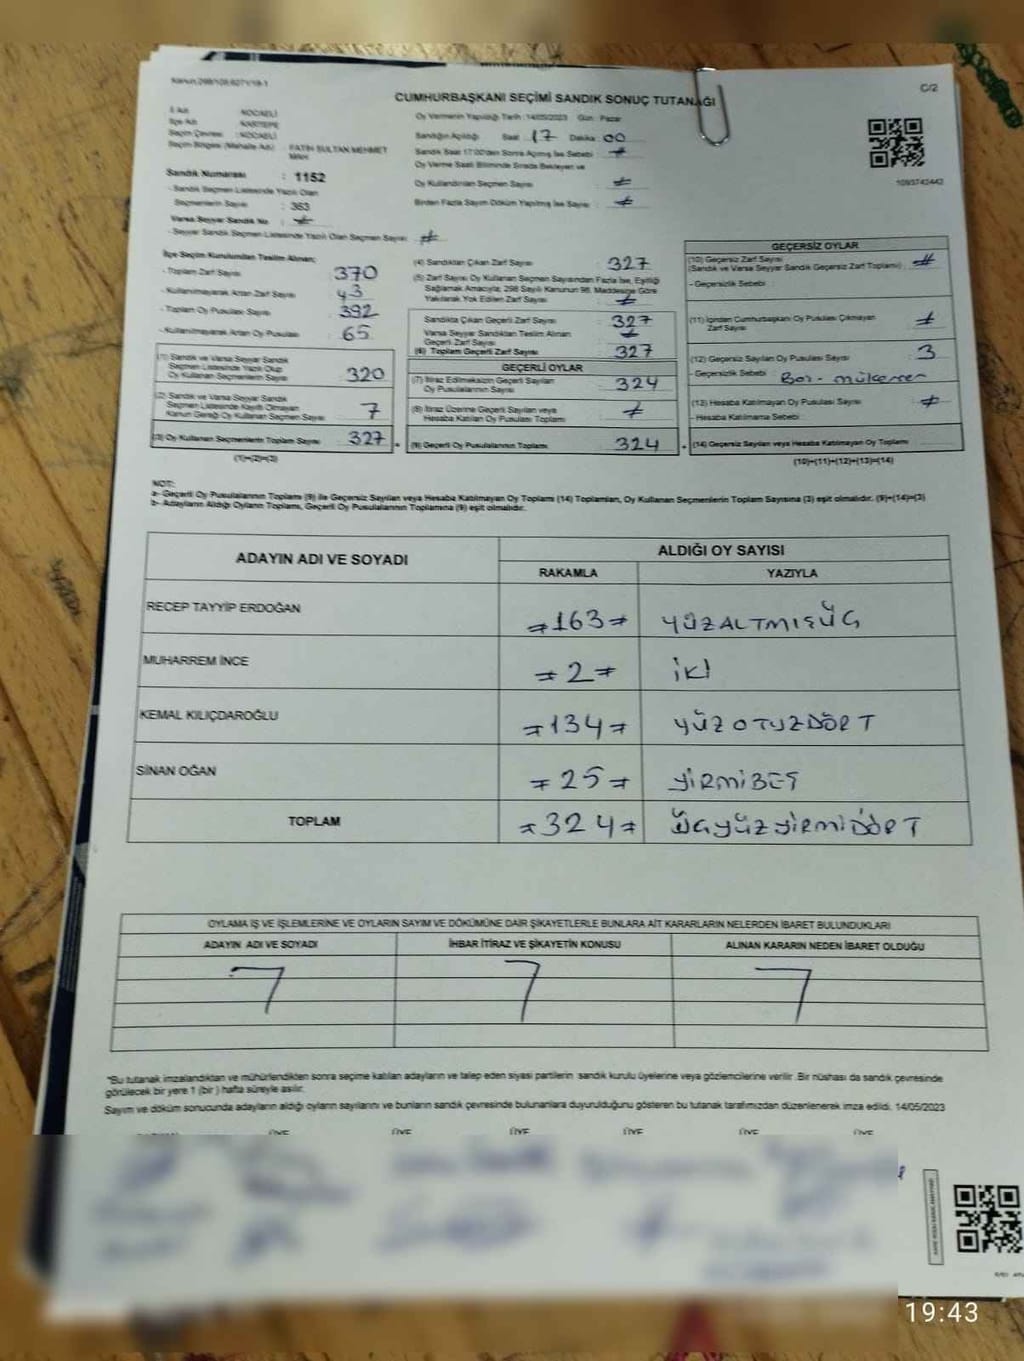 Kanun:298/105,6271/19-1
C/2
CUMHURBAŞKANI SEÇİMİ SANDIK SONUÇ TUTANAĞI
İl Adı : KOCAELİ
İlçe Adı : KARTEPE
Seçim Çevresi : KOCAELİ
Seçim Bölgesi (Mahalle Adı) : FATİH SULTAN MEHMET MAH.
Sandık Numarası : 1152
- Sandık Seçmen Listesinde Yazılı Olan
Seçmenlerin Sayısı : 363
Varsa Seyyar Sandık No :
- Seyyar Sandık Seçmen Listesinde Yazılı Olan Seçmen Sayısı :
Oy Vermenin Yapıldığı Tarih : 14/05/2023 Gün : Pazar
Sandığın Açıldığı Saat : 17 Dakika : 00
Sandık Saat 17:00'den Sonra Açılmış İse Sebebi :
Oy Verme Saati Bitiminde Sırada Bekleyen ve
Oy Kullandırılan Seçmen Sayısı :
Birden Fazla Sayım Döküm Yapılmış İse Sayısı :
1093743442
İlçe Seçim Kurulundan Teslim Alınan;
- Toplam Zarf Sayısı : 370
- Kullanılmayarak Artan Zarf Sayısı : 43
- Toplam Oy Pusulası Sayısı : 392
- Kullanılmayarak Artan Oy Pusulası : 65
(1) Sandık ve Varsa Seyyar Sandık
Seçmen Listesinde Yazılı Olup
Oy Kullanan Seçmenlerin Sayısı : 320
(2) Sandık ve Varsa Seyyar Sandık
Seçmen Listesinde Kayıtlı Olmayan
Kanun Gereği Oy Kullanan Seçmen Sayısı : 7
(3) Oy Kullanan Seçmenlerin Toplam Sayısı : 327
(1)+(2)=(3)
(4) Sandıktan Çıkan Zarf Sayısı : 327
(5) Zarf Sayısı Oy Kullanan Seçmen Sayısından Fazla İse, Eşitliği
Sağlamak Amacıyla; 298 Sayılı Kanunun 98. Maddesine Göre
Yakılarak Yok Edilen Zarf Sayısı :
Sandıkta Çıkan Geçerli Zarf Sayısı : 327
Varsa Seyyar Sandıktan Teslim Alınan
Geçerli Zarf Sayısı :
(6) Toplam Geçerli Zarf Sayısı : 327
GEÇERLİ OYLAR
(7) İtiraz Edilmeksizin Geçerli Sayılan
Oy Pusulalarının Sayısı : 324
(8) İtiraz Üzerine Geçerli Sayılan veya
Hesaba Katılan Oy Pusulaları Toplamı :
(9) Geçerli Oy Pusulalarının Toplamı : 324
GEÇERSİZ OYLAR
(10) Geçersiz Zarf Sayısı
(Sandık ve Varsa Seyyar Sandık Geçersiz Zarf Toplamı) :
- Geçersizlik Sebebi :
(11) İçinden Cumhurbaşkanı Oy Pusulası Çıkmayan
Zarf Sayısı :
(12) Geçersiz Sayılan Oy Pusulası Sayısı : 3
- Geçersizlik Sebebi : Boş - mükerrer
(13) Hesaba Katılmayan Oy Pusulası Sayısı :
- Hesaba Katılmama Sebebi :
(14) Geçersiz Sayılan veya Hesaba Katılmayan Oy Toplamı :
(10)+(11)+(12)+(13)=(14)
NOT:
a- Geçerli Oy Pusulalarının Toplamı (9) ile Geçersiz Sayılan veya Hesaba Katılmayan Oy Toplamı (14) Toplamları, Oy Kullanan Seçmenlerin Toplam Sayısına (3) eşit olmalıdır. (9)+(14)=(3)
b- Adayların Aldığı Oyların Toplamı, Geçerli Oy Pusulalarının Toplamına (9) eşit olmalıdır.
ADAYIN ADI VE SOYADI ALDIĞI OY SAYISI
RAKAMLA YAZIYLA
RECEP TAYYİP ERDOĞAN =163= YÜZALTMIŞÜÇ
MUHARREM İNCE =2= İKİ
KEMAL KILIÇDAROĞLU =134= YÜZOTUZDÖRT
SİNAN OĞAN =25= YİRMİBEŞ
TOPLAM =324= ÜÇYÜZYİRMİDÖRT
OYLAMA İŞ VE İŞLEMLERİNE VE OYLARIN SAYIM VE DÖKÜMÜNE DAİR ŞİKAYETLERLE BUNLARA AİT KARARLARIN NELERDEN İBARET BULUNDUKLARI
ADAYIN ADI VE SOYADI İHBAR İTİRAZ VE ŞİKAYETİN KONUSU ALINAN KARARIN NEDEN İBARET OLDUĞU
*Bu tutanak imzalandıktan ve mühürlendikten sonra seçime katılan adayların ve talep eden siyasi partilerin sandık kurulu üyelerine veya gözlemcilerine verilir. Bir nüshası da sandık çevresinde
görülecek bir yere 1 (bir ) hafta süreyle asılır.
Sayım ve döküm sonucunda adayların aldığı oyların sayılarını ve bunların sandık çevresinde bulunanlara duyurulduğunu gösteren bu tutanak tarafımızdan düzenlenerek imza edildi. 14/05/2023
ÜYE ÜYE ÜYE ÜYE ÜYE ÜYE
19:43